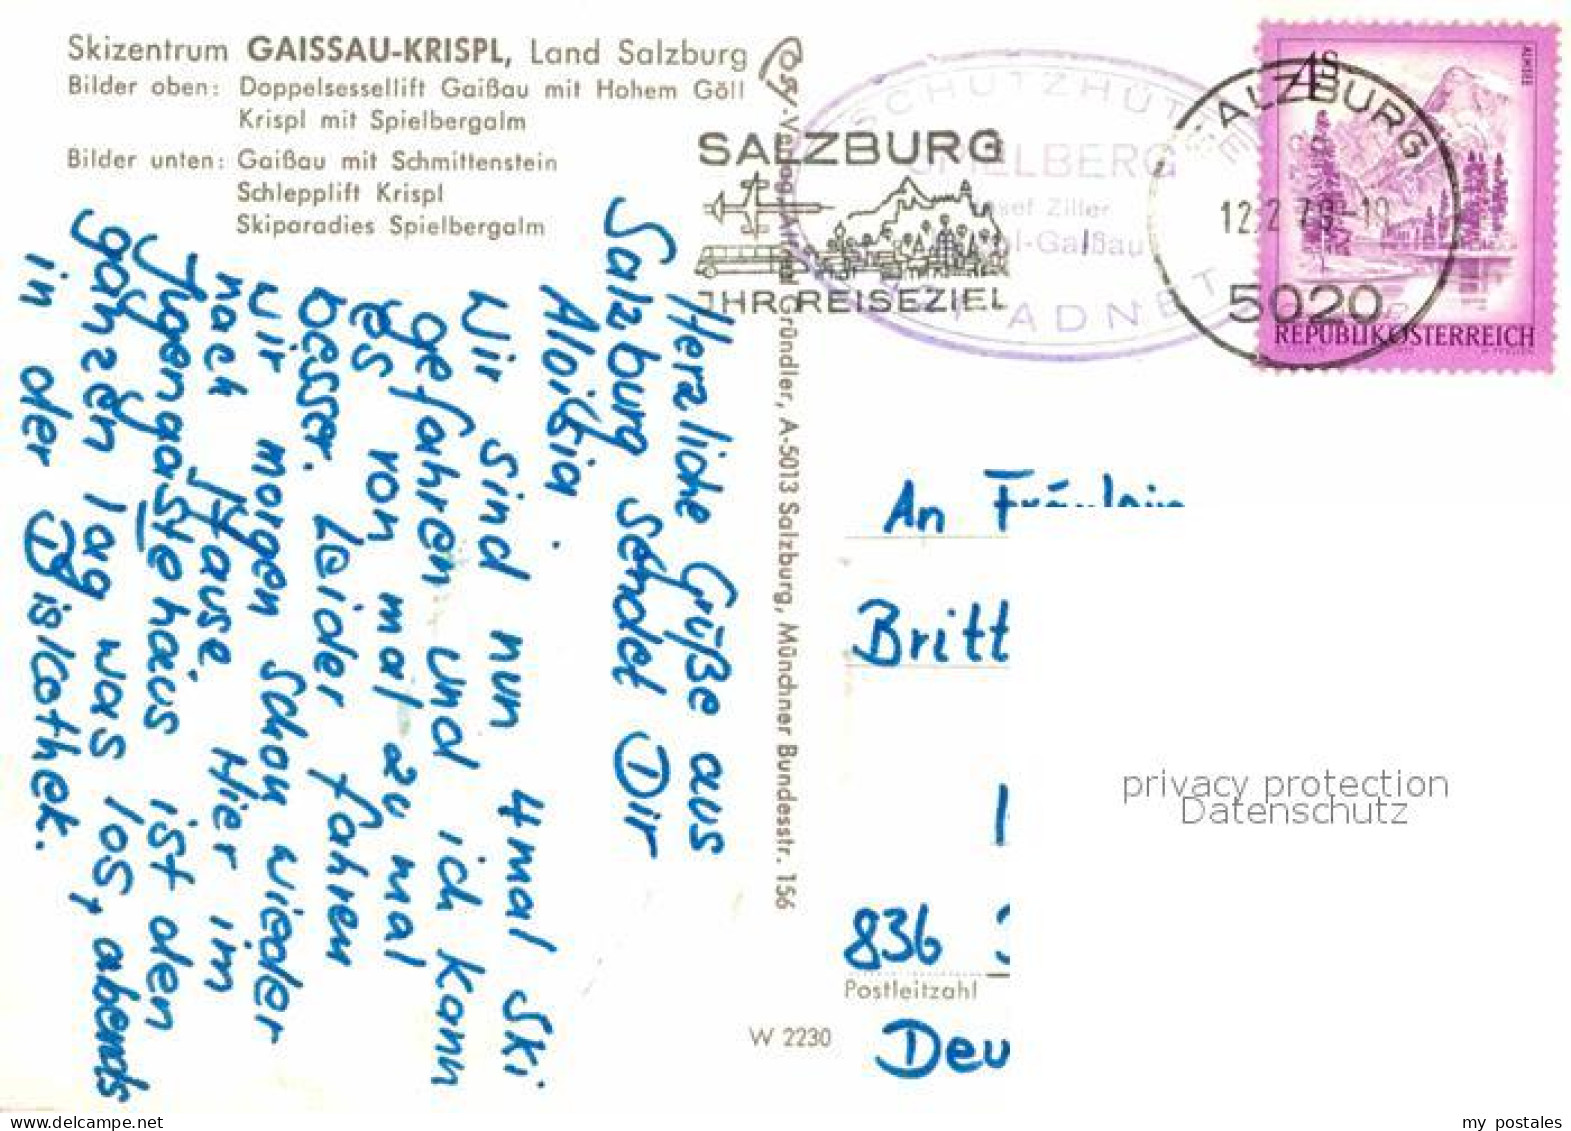 Skizentrum GAISSAU-KRISPL, Land Salzburg
Bilder oben: Doppelsessellift Gaißau mit Hohem Göll
Krispl mit Spielbergalm
Bilder unten: Gaißau mit Schmittenstein
Schlepplift Krispl
Skiparadies Spielbergalm
Cosy-Verlag Alfred Gründler, A-5013 Salzburg, Münchner Bundesstr. 156
SCHUTZHÜTTE
SPIELBERG
Josef Ziller
ADNET
SALZBURG
IHR REISEZIEL
SALZBURG
5020
4S
ALMSEE
REPUBLIK ÖSTERREICH
Herzliche Grüße aus
Salzburg sendet Dir
Aloisia.
Wir sind nun 4mal Ski
gefahren und ich kann
es von mal zu mal
besser. Leider fahren
wir morgen schon wieder
nach Hause. Hier im
Jugengästehaus ist den
ganzen Tag was los, abends
in der Diskothek.
An Fräulein
Britt
836
Postleitzahl
Deu
W 2230
privacy protection
Datenschutz
my_postales